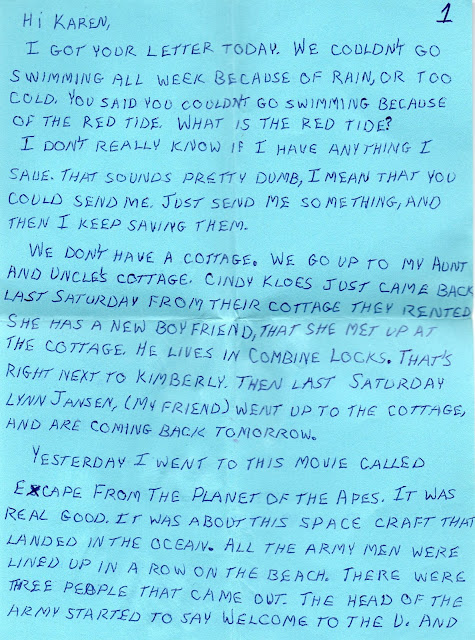 1
Hi Karen,
I got your letter today. We couldn't go
swimming all week because of rain, or too
cold. You said you couldn't go swimming because
of the red tide. What is the red tide?
I don't really know if I have anything I
save. That sounds pretty dumb, I mean that you
could send me. Just send me something, and
then I keep saving them.
We don't have a cottage. We go up to my Aunt
and Uncle's cottage. Cindy Kloes just came back
last Saturday from their cottage they rented
She has a new boyfriend, that she met up at
the cottage. He lives in Combine Locks. That's
right next to Kimberly. Then last Saturday
Lynn Jansen, (my friend) went up to the cottage,
and are coming back tomorrow.
Yesterday I went to this movie called
Excape From The Planet of the Apes. It was
real good. It was about this space craft that
landed in the ocean. All the army men were
lined up in a row on the beach. There were
three people that came out. The head of the
army started to say welcome to the U. and